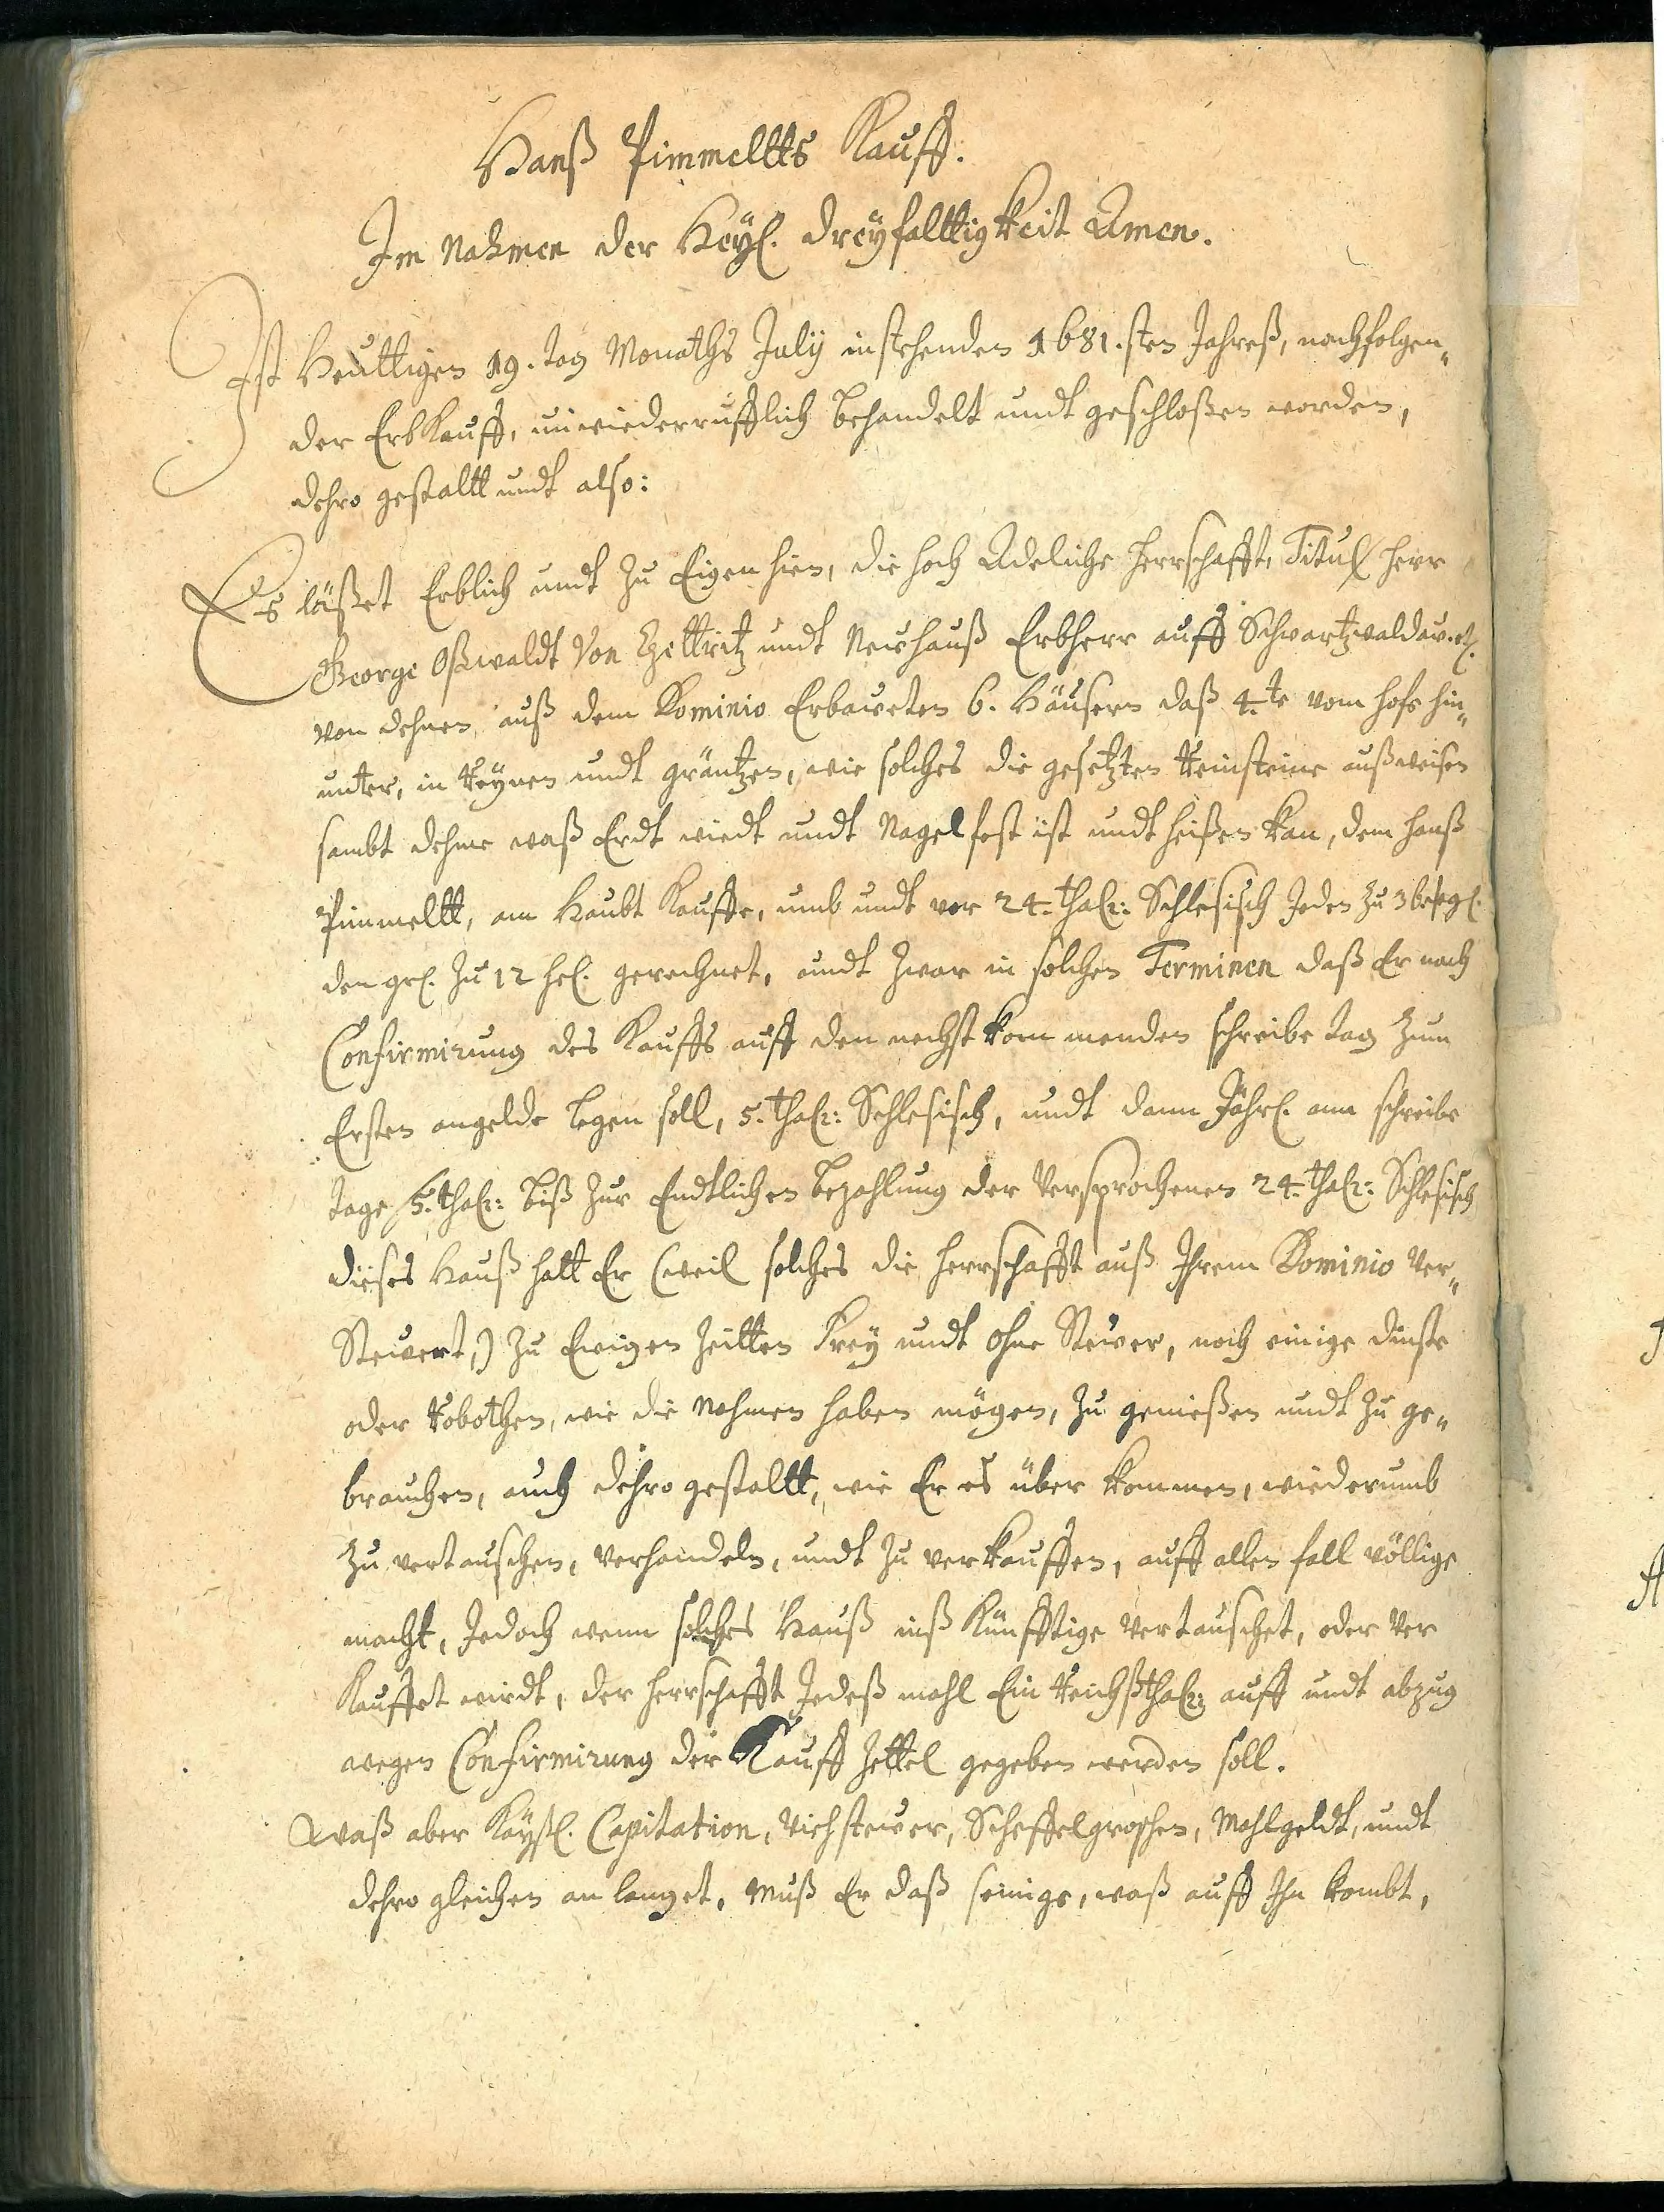 Hanß Pimmeltts Kauff.
Im Nahmen der Heyl. dreyfalttigkeit Amen.
Ist Heuttigen 19. tag Monaths Julij instehenden 1681.sten Jahreß, nachfolgen„
der Erb Kauff, unwiederrufflich behandelt undt geschloßen worden,
dehro gestaltt undt also:
Es läßet Erblich undt zu Eigen hien, die hoch Adeliche Herrschafft, Titul Herr
George Oßwaldt Von Tzettritz undt Neuhauß Erbherr auff Schwartzwaldau.
von dehnen auß dem Dominio Erbaweten 6. Häusern daß 4.te vom hofe hin„
unter, in Reynen undt gräntzen, wie solches die gesetzten Reinsteine außweisen
sambt dehme waß Erdt wiedt undt Nagelfest ist undt heißen kan, dem Hanß
Pimmeltt, am Haubt Kauffe, umb undt vor 24. thalr: Schlesisch Jeden zu 36
den grl. zu 12 hel. gerechnet, undt zwar in solchen Terminen daß Er nach
Confirmirung des Kauffs auff den nechst kommenden schreibe tag zum
Ersten angelde legen soll, 5. thalr: Schlesisch, undt dann Jährl. am schreibe
tage 5. thalr: biß zur Endtlichen bezahlung der Versprochenen 24. thalr: Schlesisch
dieses Hauß hatt Er (weil solches die Herrschafft auß Ihrem Dominio Ver„
Steuert,) zu Ewigen Zeitten Frey undt ohne Steuer, noch einige dinste
oder Robothen, wie die Nahmen haben mögen, zu genießen undt zu ge„
brauchen, auch dehro gestaltt, wie Er es über kommen, wiederumb
zu vertauschen, Verhandeln, undt zu verkauffen, auff allen fall völlige
macht, Jedoch wenn solches Hauß inß Künfftige Vertauschet, oder Ver
Kauffet wirdt, der Herrschafft Jedeß mahl Ein Reichßthalr: auff undt abzug
wegen Confirmirung der Kauff Zettel gegeben werden soll.
Waß aber Kaysl. Capitation, Viehsteuer, Scheffelgroschen, Mahlgeldt, undt
dehro gleichen anlanget, Muß Er daß seinige, waß auff Ihn kombt,